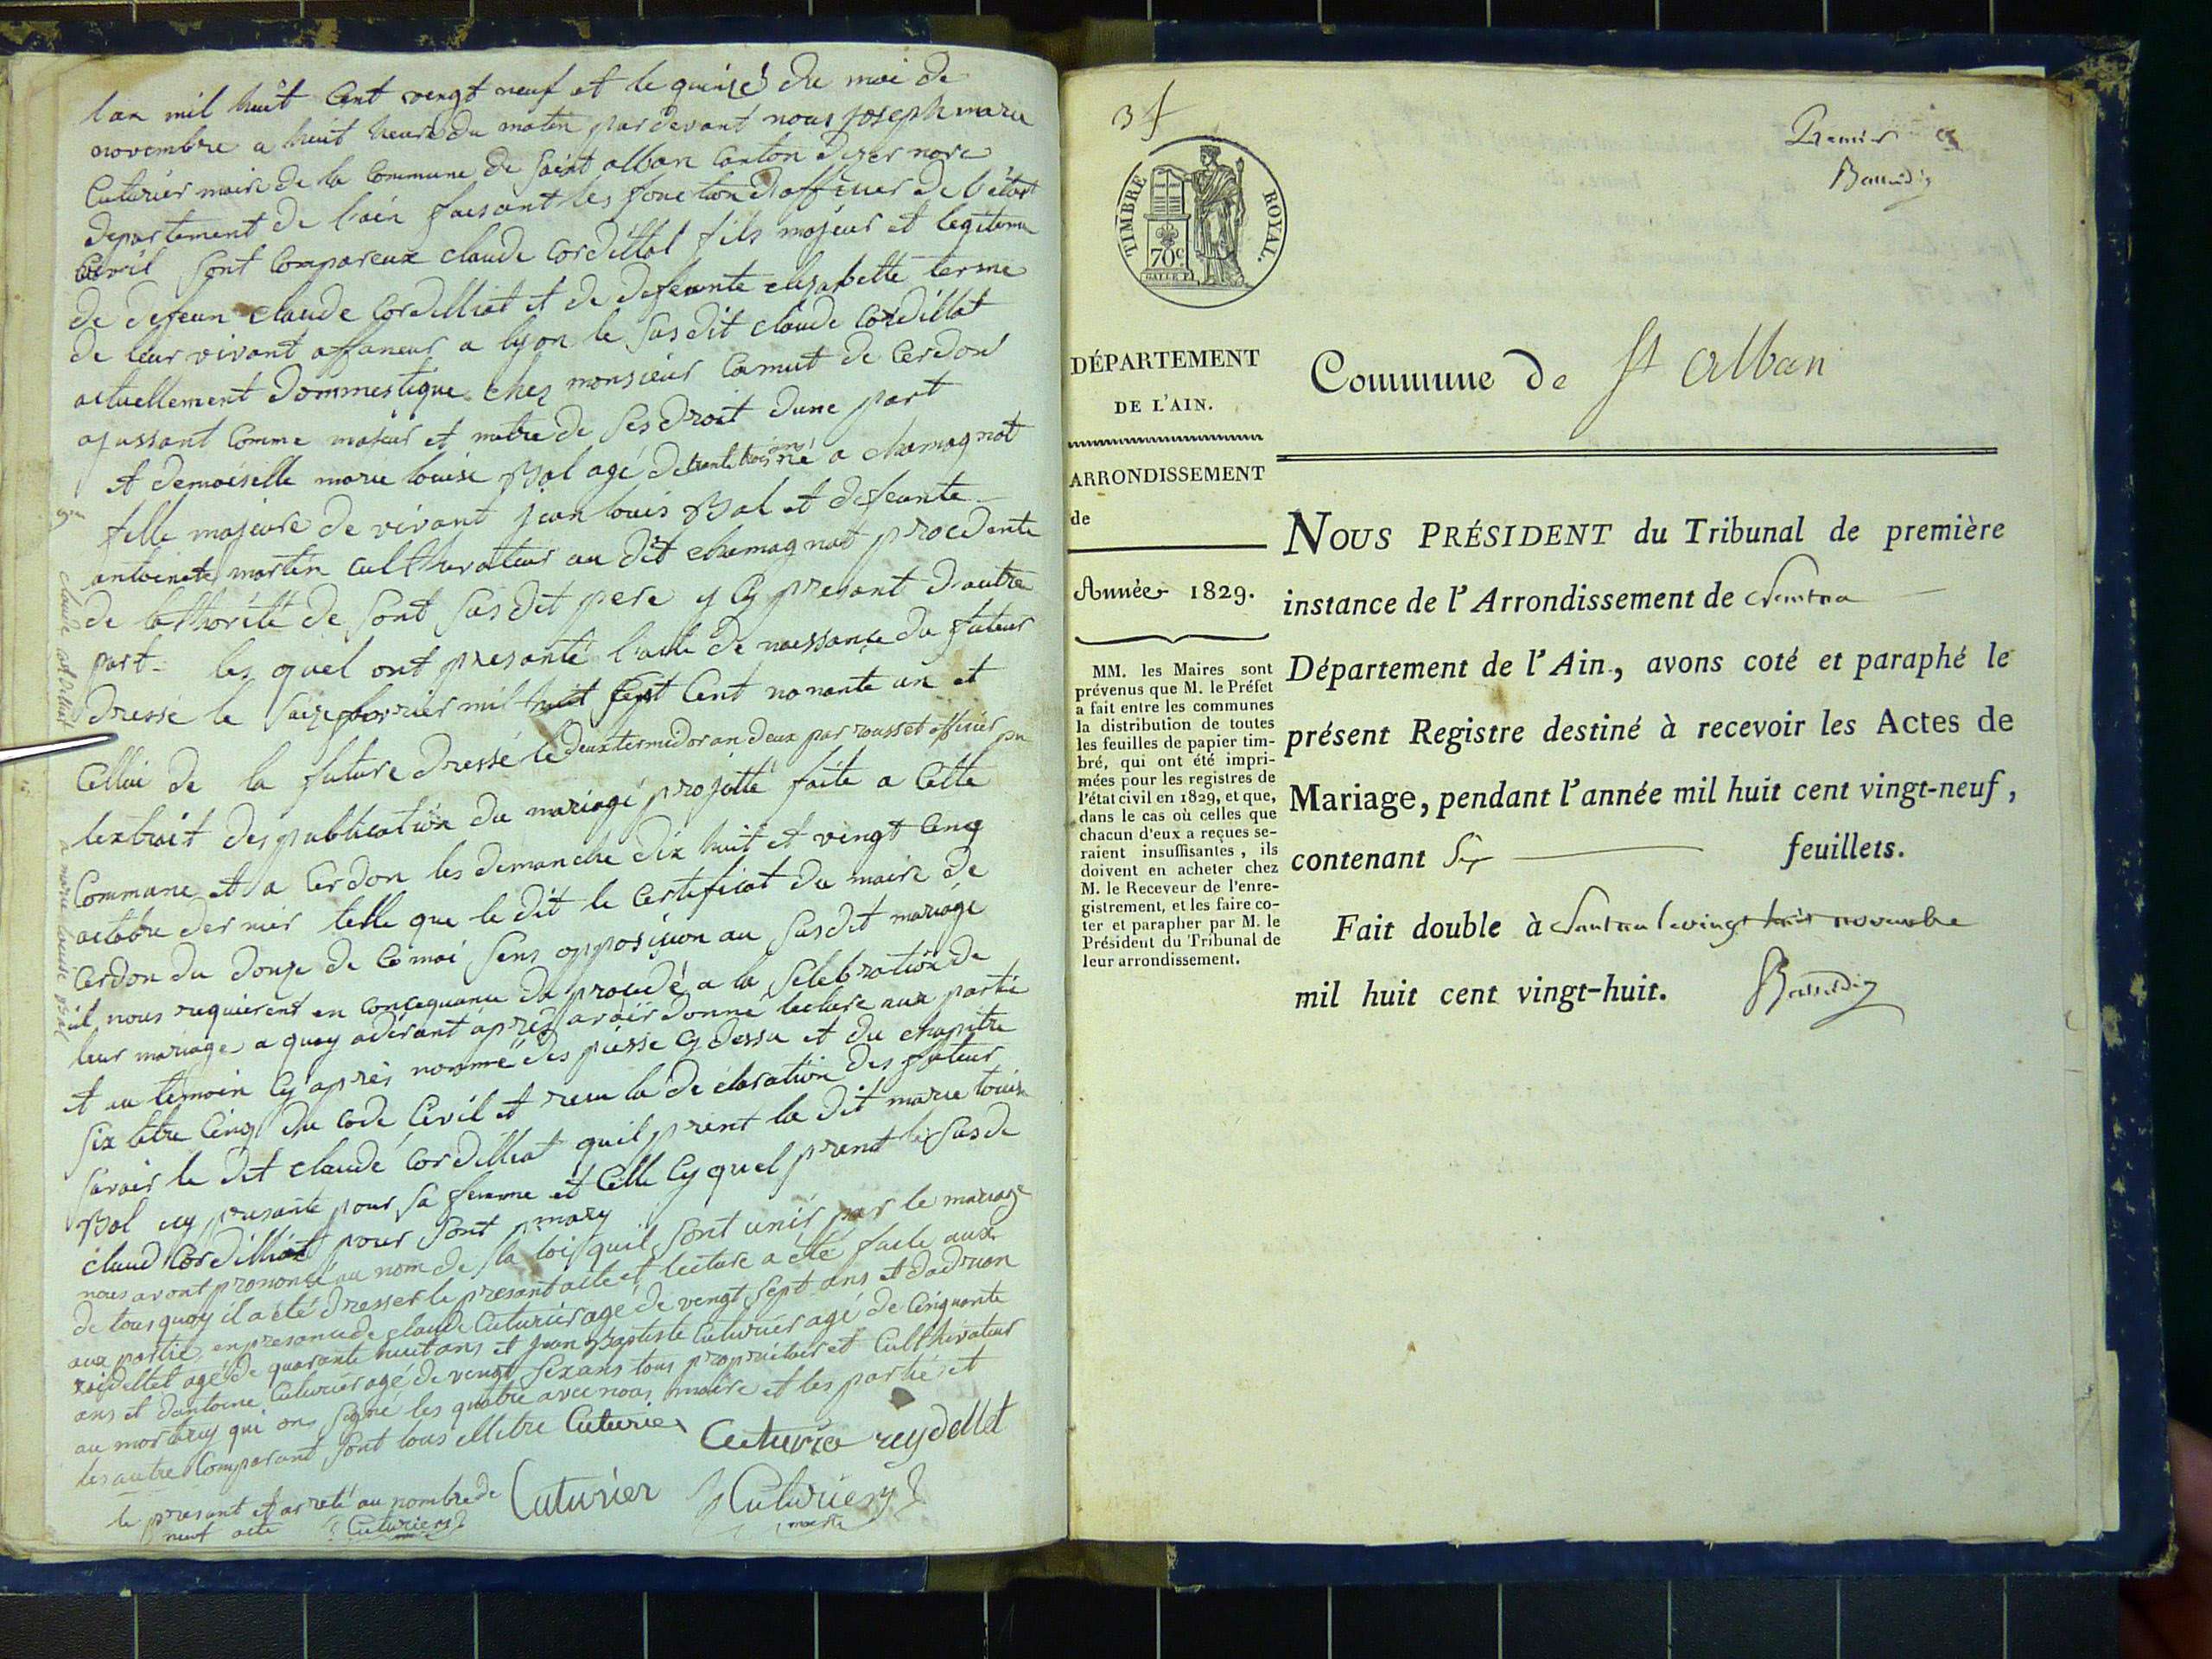 lan mil huit Cent vengt neuf et le quinze du moi de
novembre a huit heure du matin pardevant nous joseph marie
Cuturier maire de la Commune de Saint alban Canton dizernore
departement de lain faisant les fonction doffisier de l'état
Civil sont Compareux claude Cordilliat fils majeur et legitime
de defeun claude Cordilliat et de defeunte elisabette terme
de leur vivant affaneur a lyon le susdit claude Cordilliat
actuellement dommestique chez monsieur Camut de Cerdon
agissant Comme majeur et metre de ses droit dune part
et demoiselle marie louise Bal agé de trante trois an né a chamagnat
fille majeure de vivant jean louis Bal et defeunte
antoinete martin culthivateur au dit chamagnat procedente
de lothorité de sont susdit pere y cy presant d'autre
part les quel ont presanté l'acte de naissance du futeur
dresse le saize fevrier mil huit sept Cent nonante un et
Cellui de la future dressé le deux termidor an deux par rousset offisier pu
lextrait des publication du mariage projetté faite a Cette
Commune et a Cerdon les demanche dix huit et vengt Cinq
octobre dernier telle que le dit le Certificat du maire de
Cerdon du douze de Ce moi sens opposision au susdit mariage
il nous requierent en concequance da procedé a la selebration de
leur mariage a quoy adérant après avoir donné lecture aux partie
et au temoin Cy après nommé des piesse Cy dessu et du chapitre
six titre Cinq du code Civil et recu la déclaration des futeur
savoir le dit claude Cordilliat quil prent la dit marie louise
Bal icy presante pour sa femme et Celle Cy quel prent le susde
claud Cordilliat pour sont mary
nous avont prononcé au nom de la loi quil sont unis par le mariage
de tous quoy il a été dresser le presant acte et lecture a eté faite aux
aux partie, en presance de claude Cuturier agé de vengt sept ans et dadrian
reidellet agé de quarante huit ans et jean Baptiste Cuturier agé de Cinquante
ans et dantoine Cuturier agé de vengt six ans tous proprietair et Culthivateur
au mortarey qui ons signé les quatre avec nous maire et les partie et
les autre Comparant sont tous illitre Cuturier Cuturier reydellet
le presant et arreté au nombre de Cuturier J Cuturier
neuf acte Cuturier maire
9me
claude cordilliat
a marie louise bal
3 f
Premier
TIMBRE ROYAL.
70c
DÉPARTEMENT
DE L'AIN.
ARRONDISSEMENT
de
Année 1829.
MM. les Maires sont
prévenus que M. le Préfet
a fait entre les communes
la distribution de toutes
les feuilles de papier tim-
bré, qui ont été impri-
mées pour les registres de
l'état civil en 1829, et que,
dans le cas où celles que
chacun d'eux a reçues se-
raient insuffisantes, ils
doivent en acheter chez
M. le Receveur de l'enre-
gistrement, et les faire co-
ter et parapher par M. le
Président du Tribunal de
leur arrondissement.
Commune de St Alban
NOUS PRÉSIDENT du Tribunal de première
instance de l'Arrondissement de Nantua
Département de l'Ain, avons coté et paraphé le
présent Registre destiné à recevoir les Actes de
Mariage, pendant l'année mil huit cent vingt-neuf,
contenant Six feuillets.
Fait double à Nantua le vingt huit novembre
mil huit cent vingt-huit.